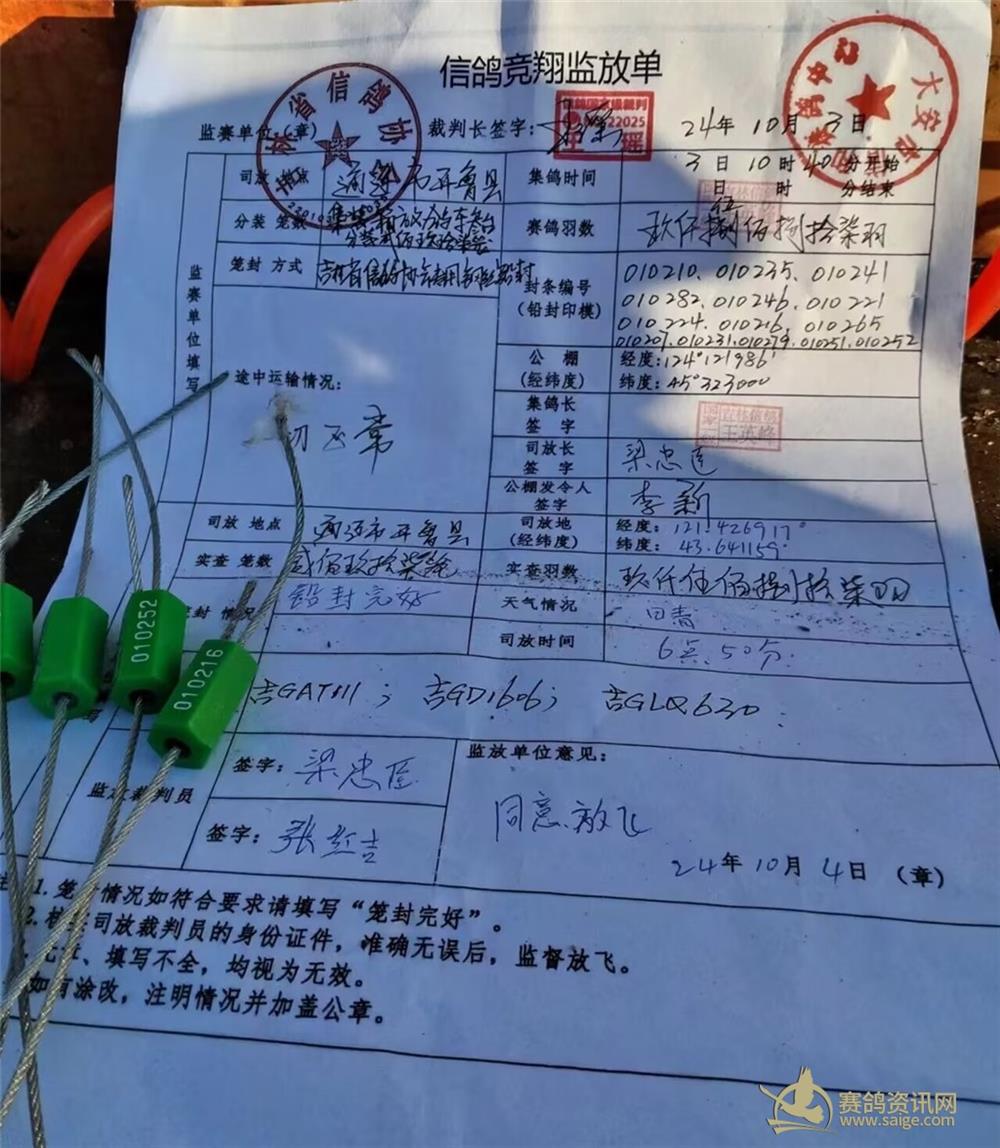 信鸽竞翔监放单
省信鸽协
大安市
监赛单位（章）
裁判长签字：
22025
24年10月3日
监赛单位填写
司放地点
通辽市开鲁县
集鸽时间
3日10时40分开始
日 时 分结束
分装 笼数
集装箱放鸽车叁台
分装贰佰玖拾柒笼
赛鸽羽数
玖仟伍佰捌拾柒羽
笼封 方式
吉林省信鸽协会专用钢丝铅封
封条编号
(铅封印模)
010210、010235、010241
010282、010246、010221
010224、010216、010265
010207、010231、010279、010251、010252
公 棚
(经纬度)
经度：124°121986′
纬度：45°323000
途中运输情况：
正常
集鸽长
签 字
吉林信鸽
王英峰
司放长
签 字
梁忠臣
公棚发令人
签字
李新
司放 地点
通辽市开鲁县
司放地
(经纬度)
经度：121.426917°
纬度：43.641159°
实查 笼数
贰佰玖拾柒笼
实查羽数
玖仟伍佰捌拾柒羽
封 情况
铅封完好
天气情况
司放时间
6点50分.
吉GAT811； 吉GD1606； 吉GLQ620
010252
010216
监放裁判员
签字：梁忠臣
签字：张红吉
监放单位意见：
同意放飞
24年10月4日（章）
1.笼 情况如符合要求请填写“笼封完好”。
2. 司放裁判员的身份证件，准确无误后，监督放飞。
、填写不全，均视为无效。
如有涂改，注明情况并加盖公章。
赛鸽资讯网
www.saige.com